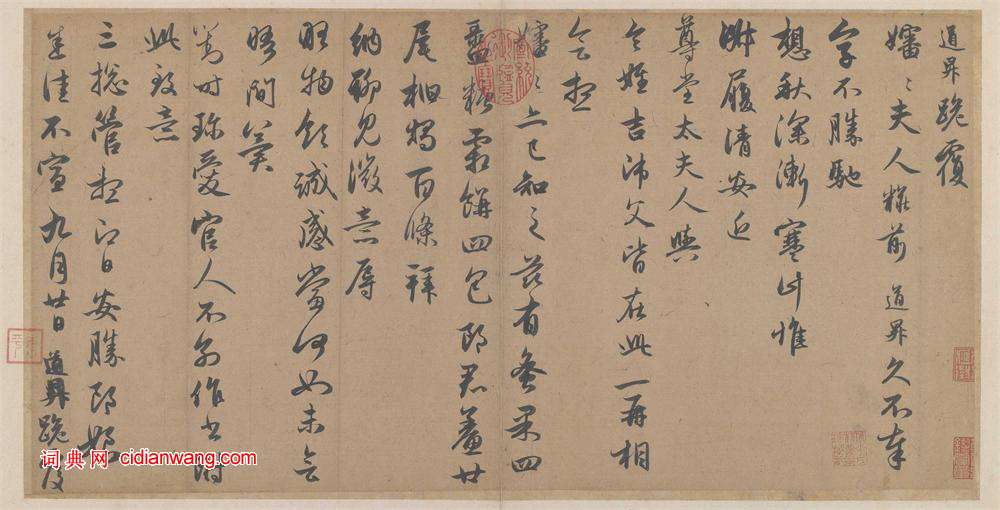 道昇跪覆
嬸〻夫人粧前 道昇久不奉
字不勝馳
想秋深漸寒計惟
淑履清安近
尊堂太夫人與
令姪吉師父皆在此一再相
會想
嬸〻亦已知之茲有蜜果四
盝糖霜餅四包郎君鯗廿
尾桕燭百條拜
納聊見微意辱
物領誠感當何如未會
晤間冀
對時珍愛官人不別作書附
此致意
三總管想即日安勝郎娘
悉佳不宣九月廿日 道昇跪覆
词典网 cidianwang.com